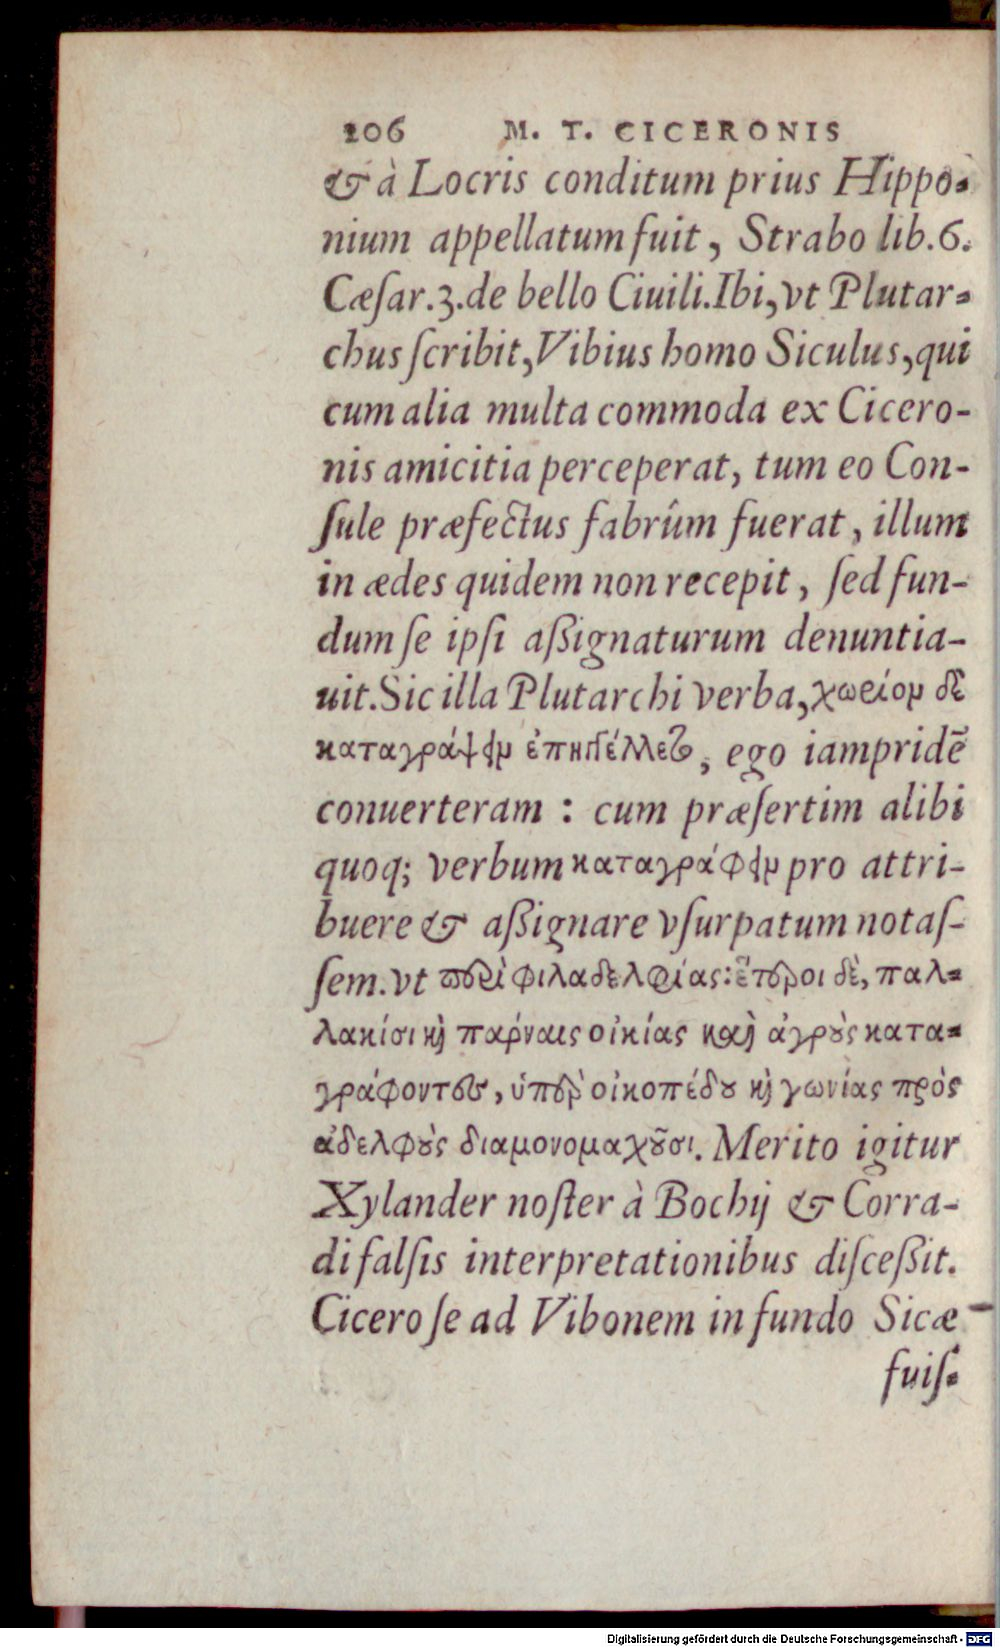 206 M. T. CICERONIS
& à Locris conditum prius Hippo-
nium appellatum fuit, Strabo lib.6.
Cæſar.3.de bello Ciuili.Ibi,vt Plutar-
chus ſcribit,Vibius homo Siculus,qui
cum alia multa commoda ex Cicero-
nis amicitia perceperat, tum eo Con-
ſule præfectus fabrûm fuerat, illum
in ædes quidem non recepit, ſed fun-
dum ſe ipſi aßignaturum denuntia-
uit.Sic illa Plutarchi verba,χωρίον δὲ
καταγράψειν ἐπηγγέλλετο, ego iampridẽ
conuerteram : cum præſertim alibi
quoq; verbum καταγράφειν pro attri-
buere & aßignare vſurpatum notaſ-
ſem.vt περὶ φιλαδελφίας:ἕτεροι δὲ, παλ-
λακίσι καὶ πόρναις οἰκίας καὶ ἀγροὺς κατα-
γράφοντες, ὑπὲρ οἰκοπέδου καὶ γωνίας πρὸς
ἀδελφοὺς διαμονομαχοῦσι. Merito igitur
Xylander noſter à Bochij & Corra-
di falſis interpretationibus diſceßit.
Cicero ſe ad Vibonem in fundo Sicæ
fuiſ-
Digitalisierung gefördert durch die Deutsche Forschungsgemeinschaft - DFG